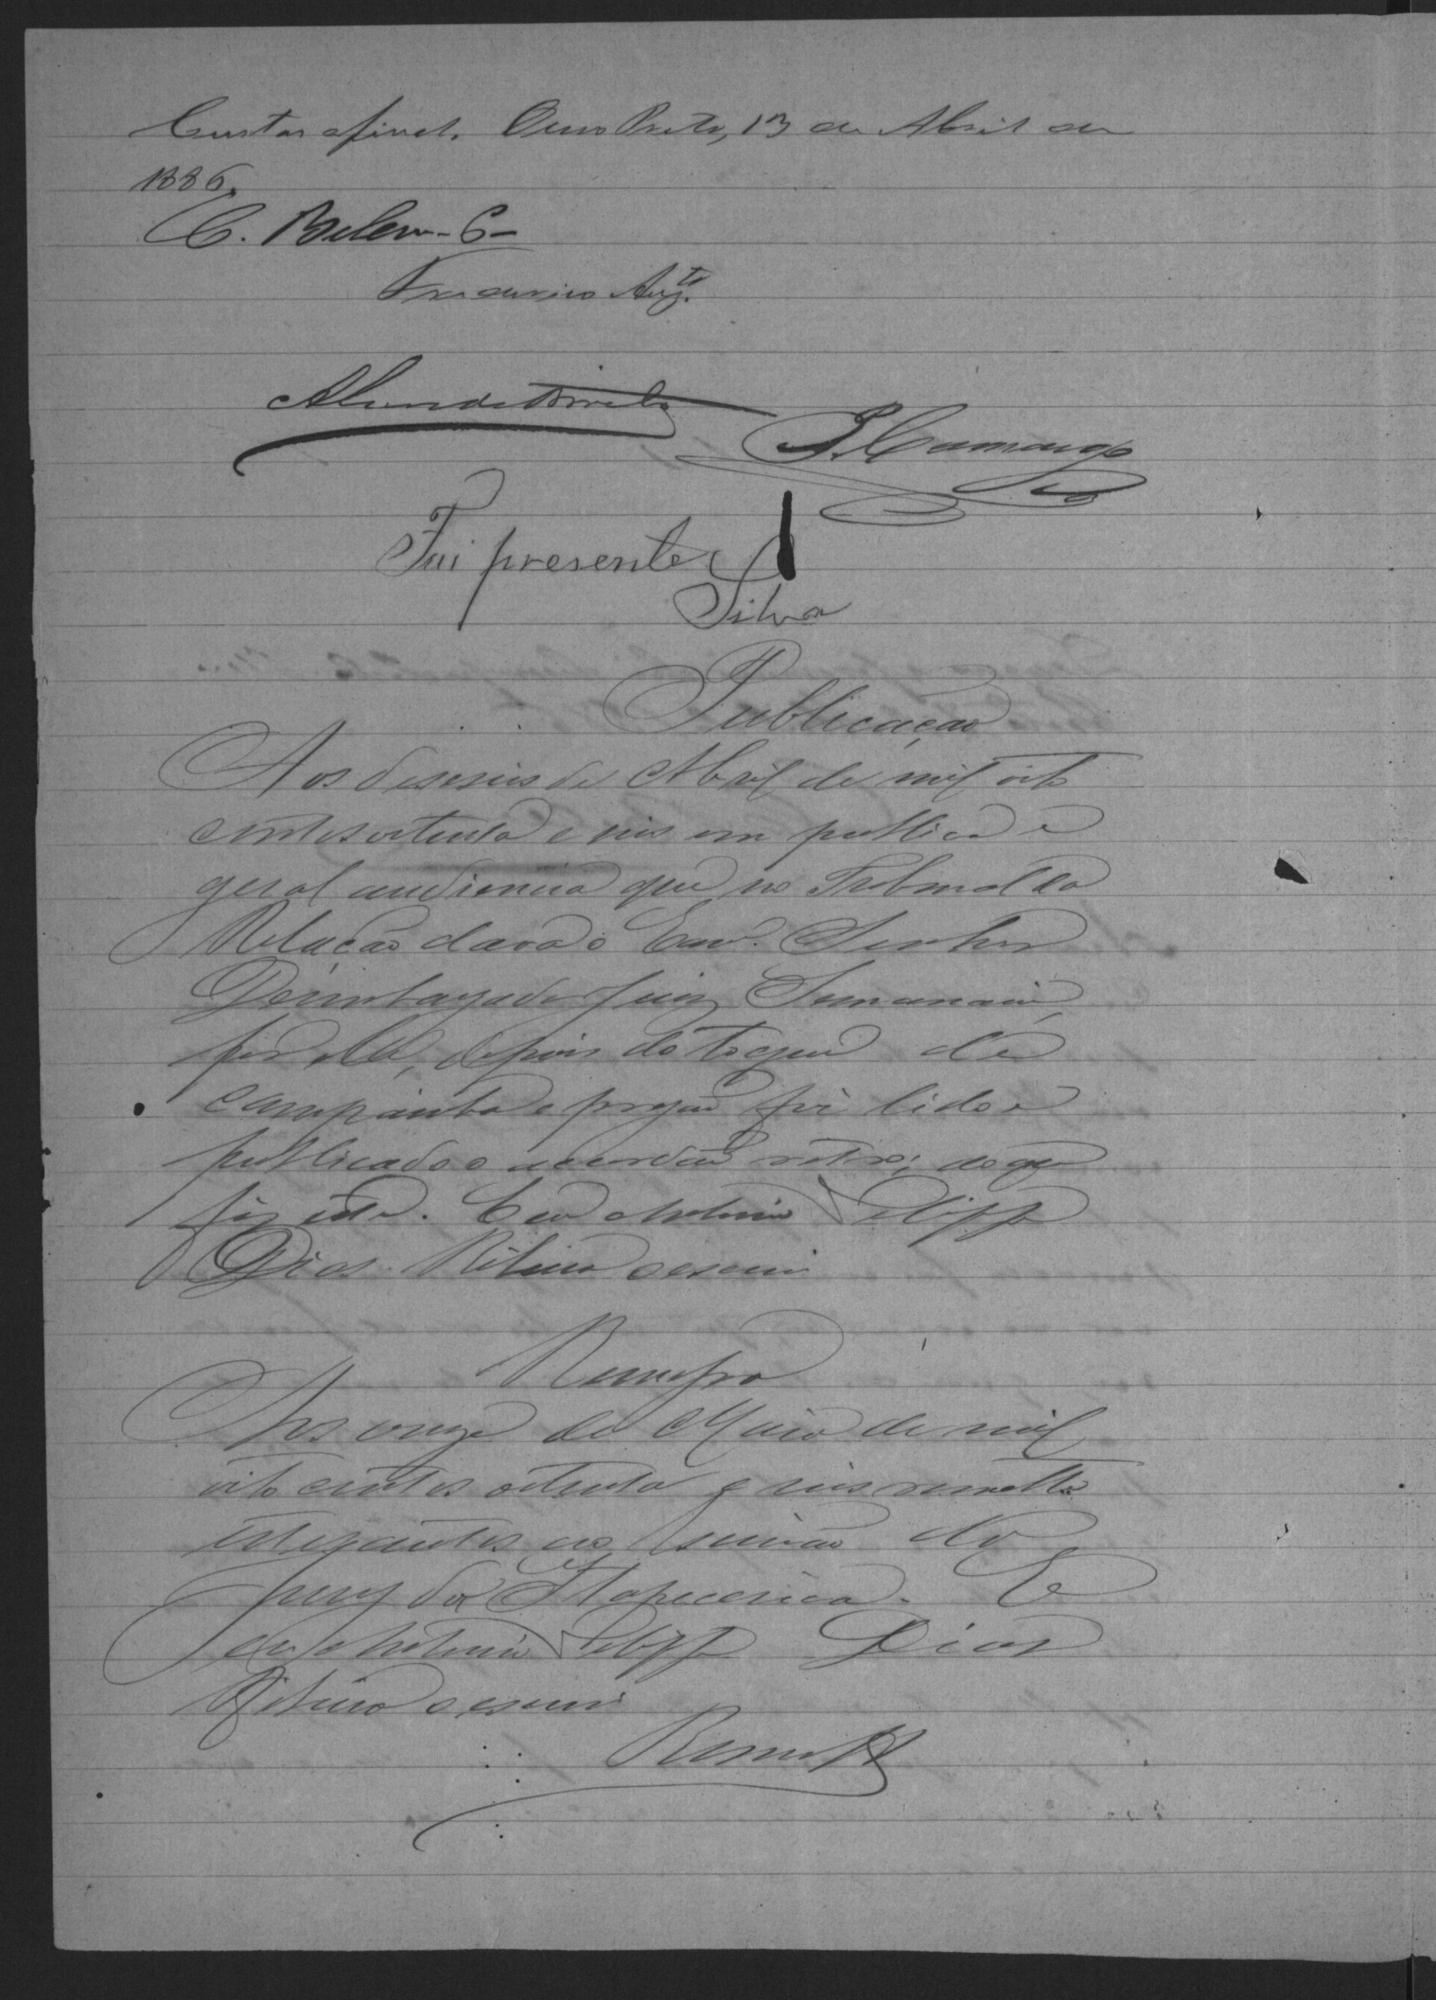 Custas afinal. Ouro Preto, 13 de Abril de
1886.
C. Belem - C -
Frederico Aug.to
J. Camargo
Fui presente
Silva
Publicação
Aos deseseis de Abril de mil oito
centos oitenta e seis em publica e
geral audiencia que no Tribunal da
Relação dava o Exmo. Senhor
Desembargador Juiz Semanario,
por elle, depois do toque de
campainha e pregão foi lido e
publicado o accordão retro; do que
fiz este. Eu Antonio Felippe
Dias Ribeiro o escrevi
Remessa
Aos onze de Maio de mil
oito centos oitenta e seis remetto
estes autos ao Escrivão do
Jury da Itapecerica. E
eu Antonio Felippe Dias
Ribeiro o escrevi